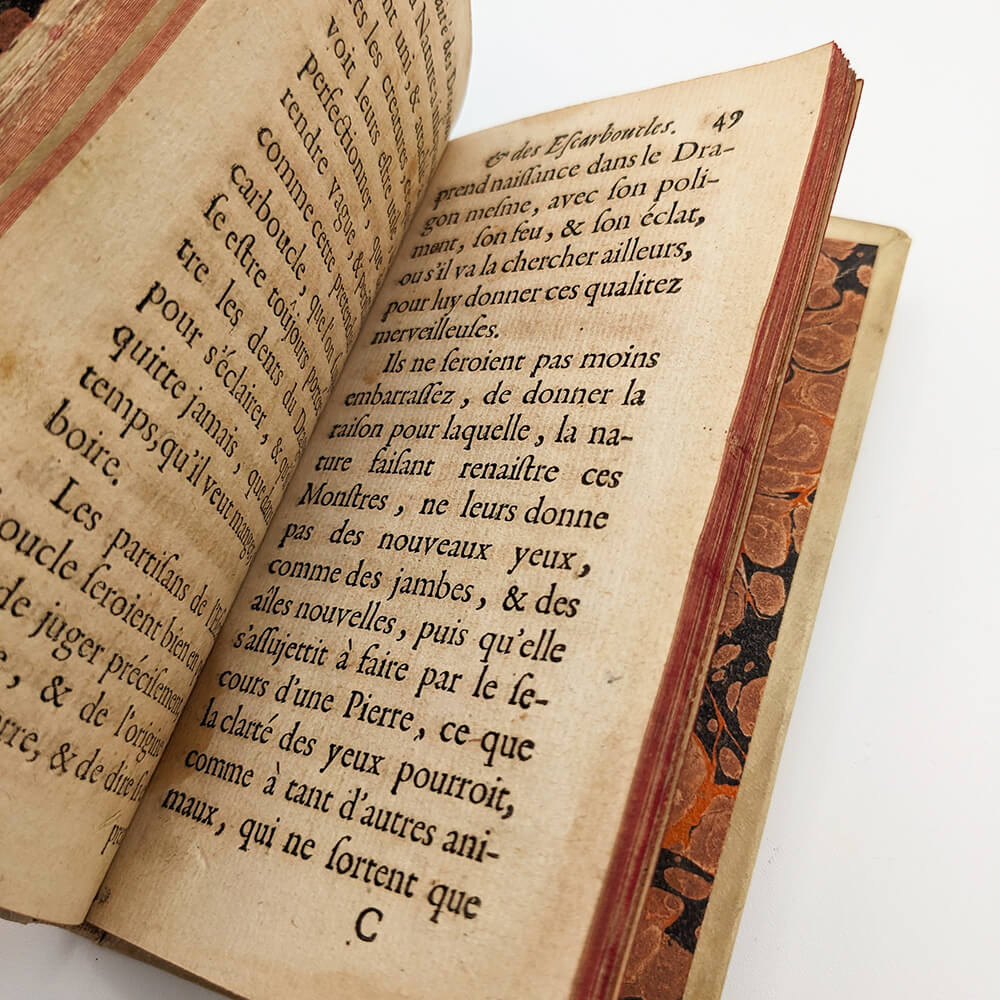 des
Nature
uni, &
les creatures
voit leurs eſtre
perfectionner, que
rendre vague, &
comme cette
carboucle, que l'on
ſe eſtre toûjours
tre les dents du
pour s'éclairer, &
quitte jamais, que dans
temps, qu'il veut manger
boire.
Les partiſans de
ſeroient bien en
de juger préciſement
, & de l'origine
& de dire
& des Eſcarboucles. 49
prend naiſſance dans le Dra-
gon meſme, avec ſon poli-
ment, ſon feu, & ſon éclat,
ou s'il va la chercher ailleurs,
pour luy donner ces qualitez
merveilleuſes.
Ils ne ſeroient pas moins
embarraſſez, de donner la
raiſon pour laquelle, la na-
ture faiſant renaiſtre ces
Monſtres, ne leurs donne
pas des nouveaux yeux,
comme des jambes, & des
aîles nouvelles, puis qu'elle
s'aſſujettit à faire par le ſe-
cours d'une Pierre, ce que
la clarté des yeux pourroit,
comme à tant d'autres ani-
maux, qui ne ſortent que
C